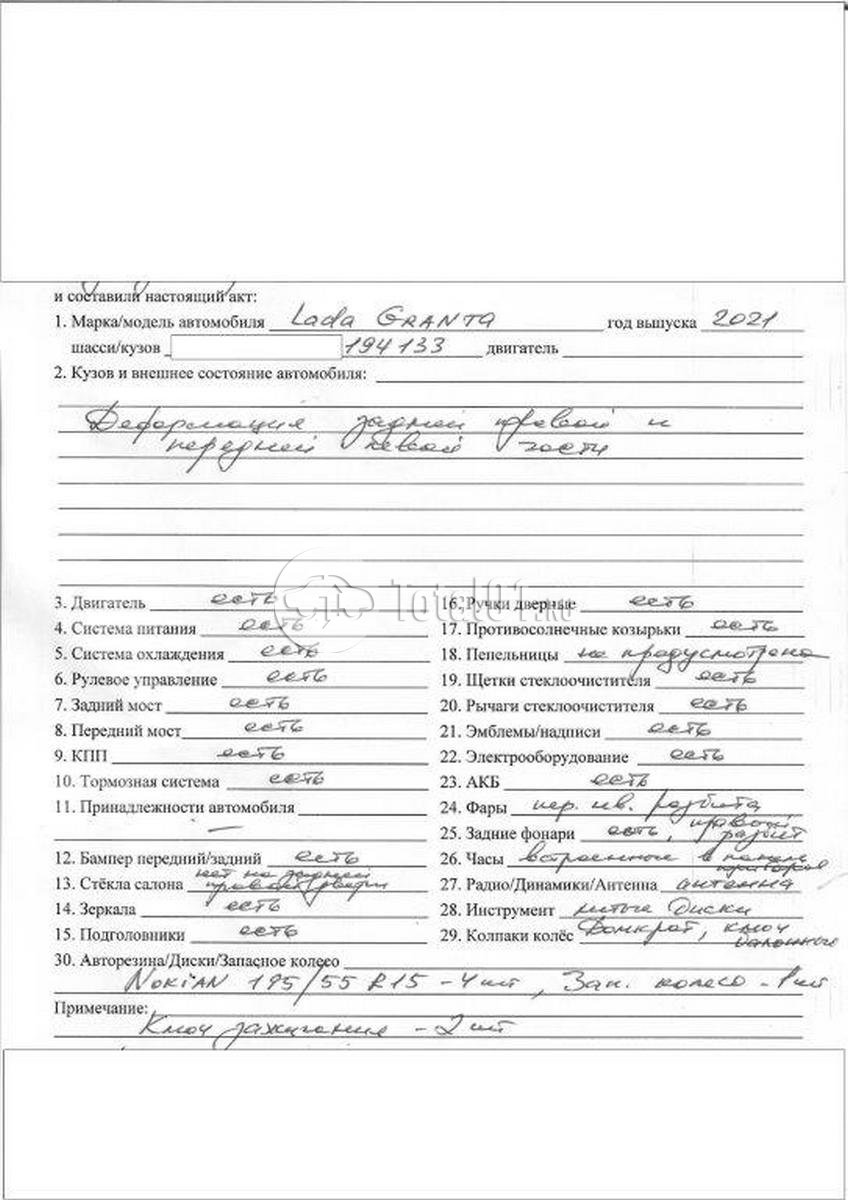 и составили настоящий акт:
1. Марка/модель автомобиля Lada GRANTA год выпуска 2021
шасси/кузов 194133 двигатель
2. Кузов и внешнее состояние автомобиля:
Деформация задней правой и
передней левой части
Total01.RU
3. Двигатель есть
4. Система питания есть
5. Система охлаждения есть
6. Рулевое управление есть
7. Задний мост есть
8. Передний мост есть
9. КПП есть
10. Тормозная система есть
11. Принадлежности автомобиля
—
12. Бампер передний/задний есть
13. Стёкла салона нет на задней
правой двери
14. Зеркала есть
15. Подголовники есть
16. Ручки дверные есть
17. Противосолнечные козырьки есть
18. Пепельницы не предусмотрена
19. Щетки стеклоочистителя есть
20. Рычаги стеклоочистителя есть
21. Эмблемы/надписи есть
22. Электрооборудование есть
23. АКБ есть
24. Фары пер. лв. разбита
25. Задние фонари есть, правый
разбит
26. Часы встроенные в панель
приборов
27. Радио/Динамики/Антенна антенна
28. Инструмент литые диски
29. Колпаки колёс Домкрат, ключ
балонный
30. Авторезина/Диски/Запасное колесо
NOKIAN 195/55 R15 - 4 шт, Зап. колесо - 1 шт
Примечание:
Ключ зажигания - 2 шт